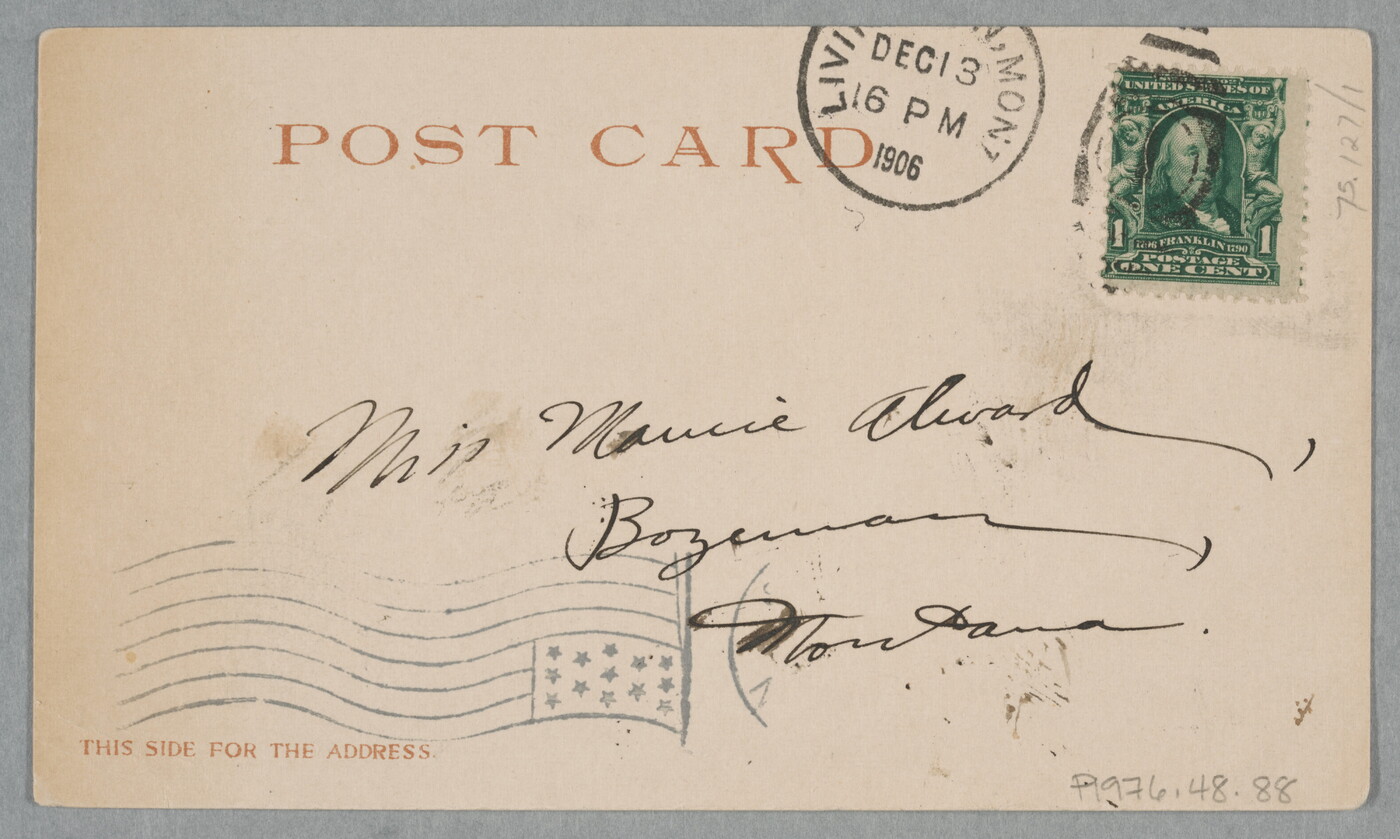 POST CARD
DEC 13
6 PM
1906
MONT
UNITED STATES OF
AMERICA
1 1706 FRANKLIN 1790 1
POSTAGE
ONE CENT
75.127/1
Miss Mamie Alward,
Bozeman,
Montana.
THIS SIDE FOR THE ADDRESS.
P1976.48.88